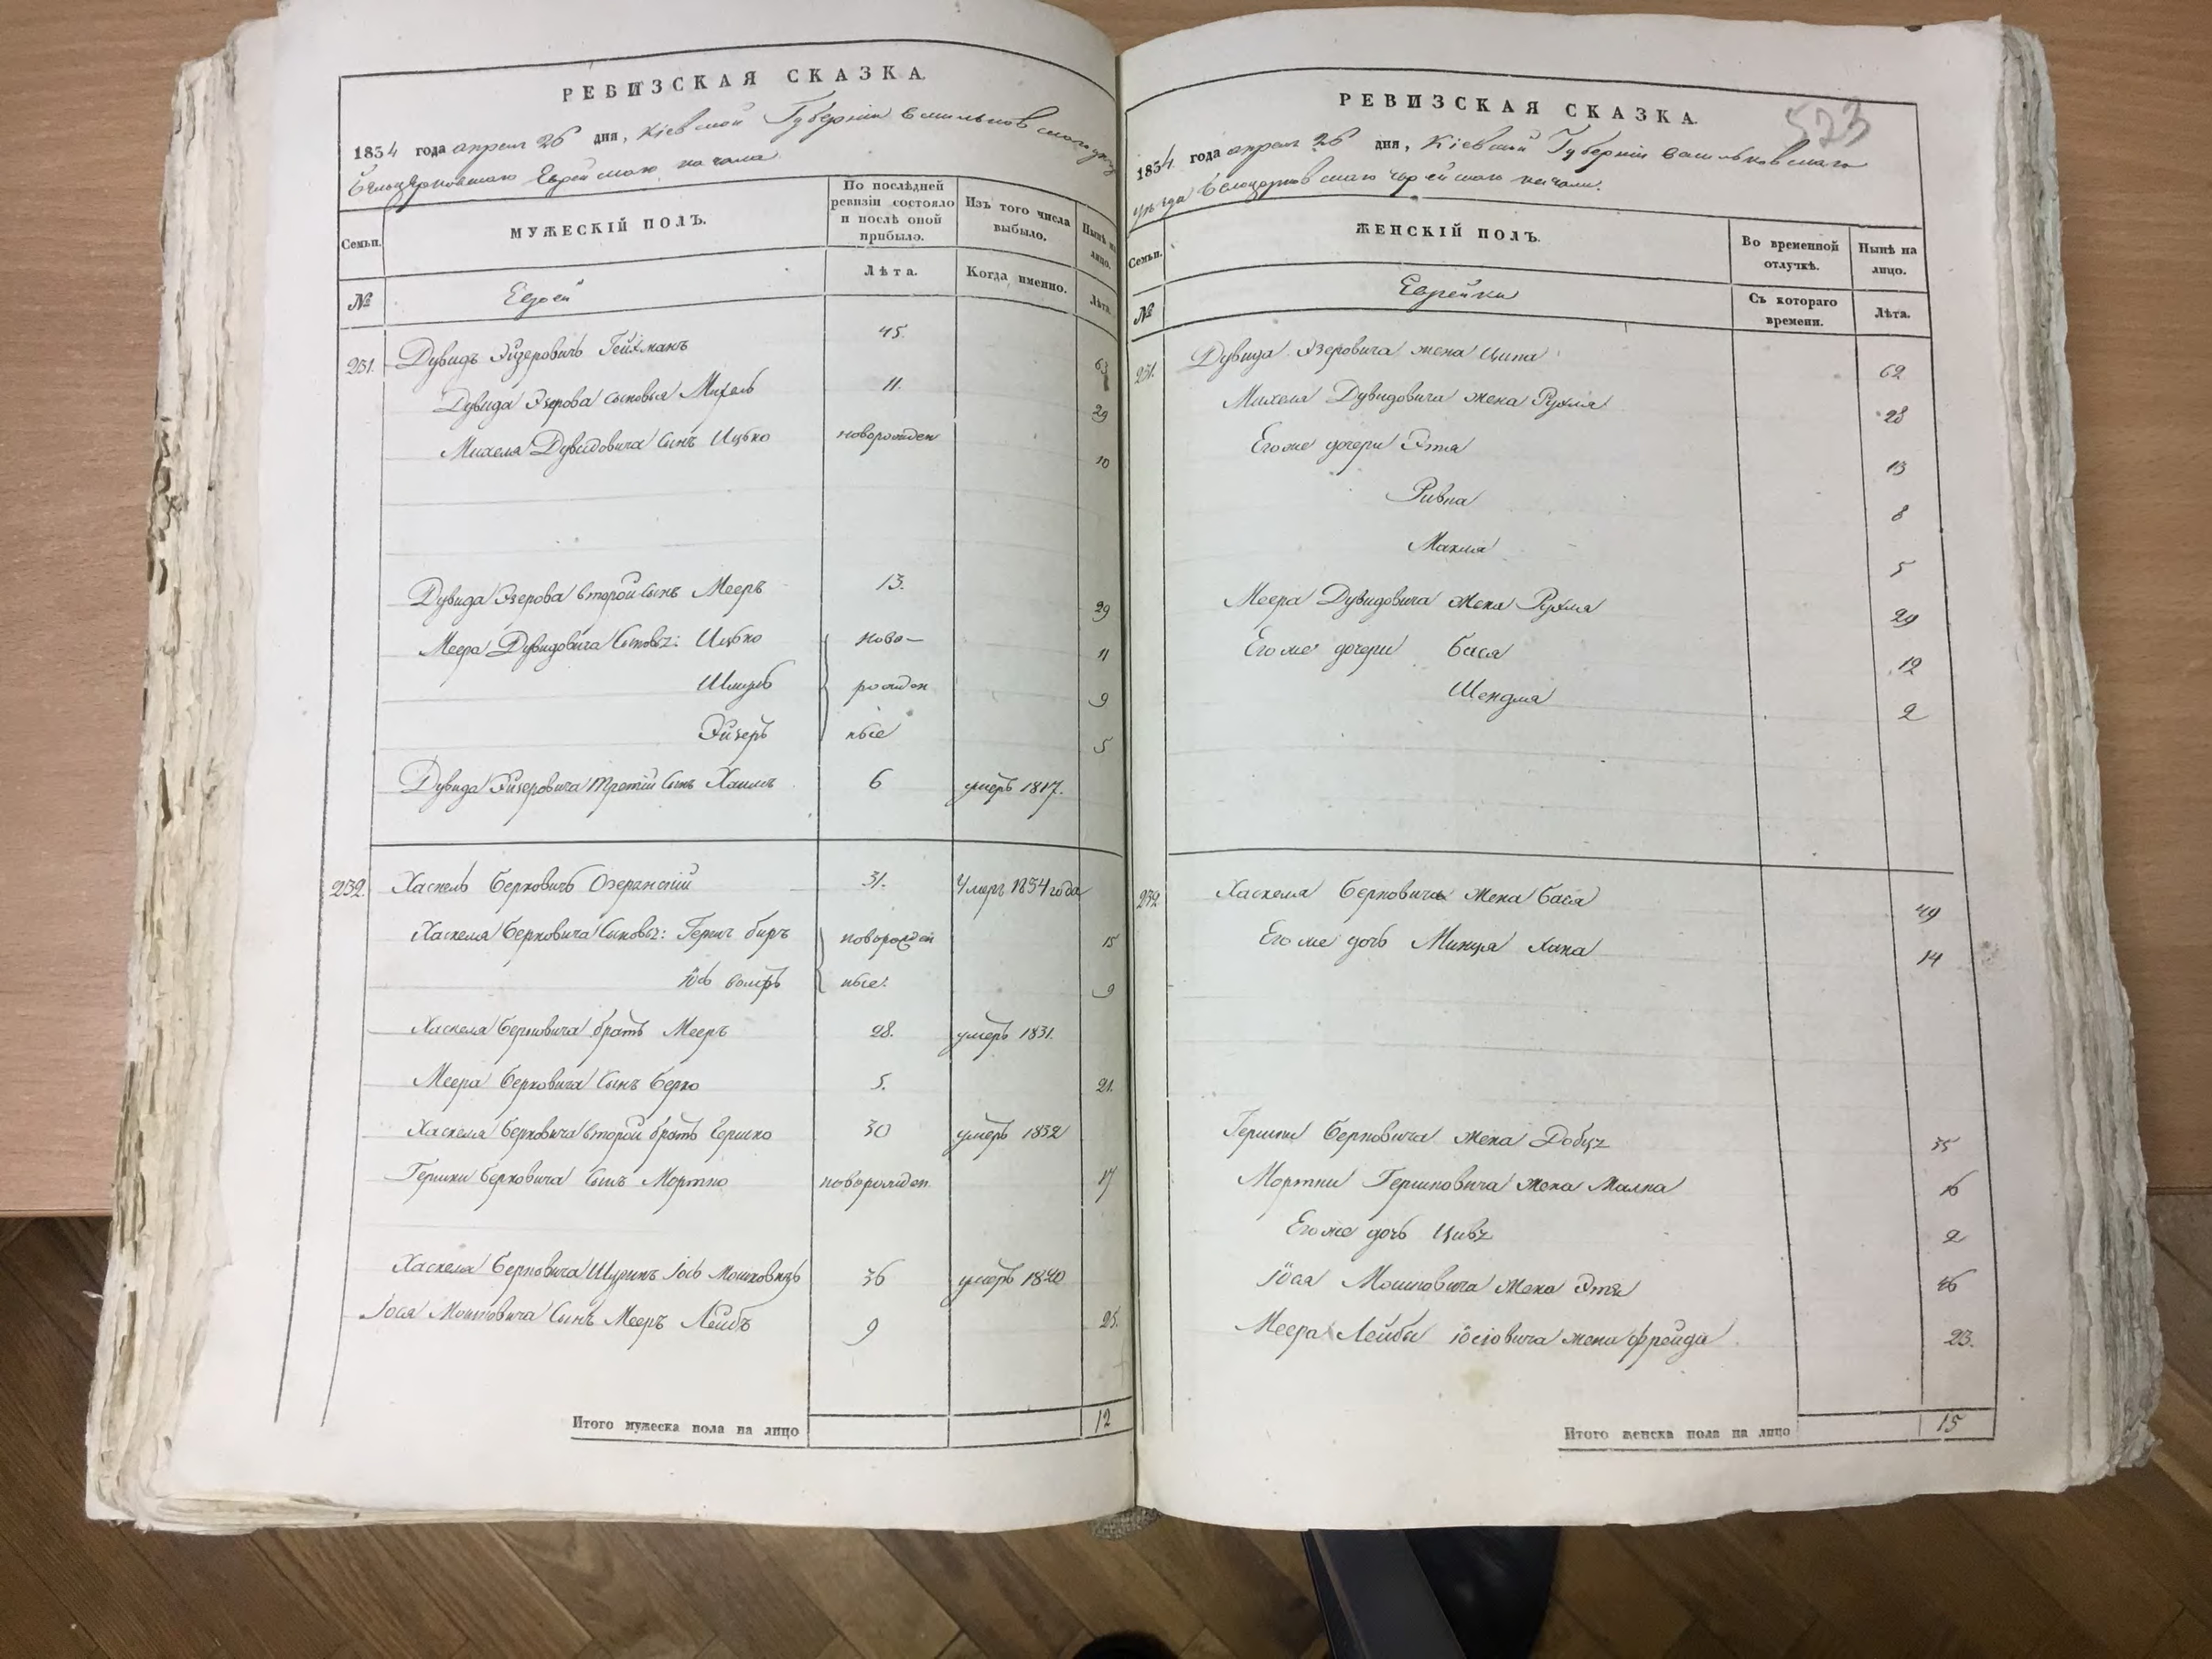 РЕВИЗСКАЯ СКАЗКА.
1834 года апреля 26 дня, Кіевской Губерніи Васильковскаго уезда
Белоцерковскаго Еврейскаго кагала.
Семьи.
МУЖЕСКІЙ ПОЛЪ.
По послѣдней ревизіи состояло и послѣ оной прибыло.
Изъ того числа выбыло.
Нынѣ на лицо.
№
Евреи
Лѣта.
Когда именно.
Лѣта.
231. Дувидъ Эйзеровичъ Гейхманъ 45. 63
Дувида Эзерова сыновья Михель 11. 29
Михеля Дувидовича сынъ Ицько новорожден 10
Дувида Эзерова второй сынъ Мееръ 13. 29
Меера Дувидовича сыновьz: Ицько ново— 11
Шмуль рожден 9
Эйзеръ ные 5
Дувида Эйзеровича третій сынъ Хаимъ 6 умеръ 1817.
232. Хаскель Берковичъ Озеранскій 31. Умеръ 1834 года
Хаскеля Берковича сыновьz: Герш беръ новорожден 15
Іось ные. 9
Хаскеля Берковича братъ Мееръ 28. умеръ 1831.
Меера Берковича сынъ Берко 5. 21.
Хаскеля Берковича второй братъ Гершко 30 умеръ 1832
Гершки Берковича сынъ Мортко новорожден 17
Хаскеля Берковича Шуринъ Іось Мошковичъ 36 умеръ 1820
Іося Мошковича сынъ Мееръ Лейбъ 9 25.
Итого мужеска пола на лицо 12
РЕВИЗСКАЯ СКАЗКА.
523
1834 года апреля 26 дня, Кіевской Губерніи Васильковскаго
уезда Белоцерковскаго Еврейскаго кагала.
Семьи.
ЖЕНСКІЙ ПОЛЪ.
Во временной отлучкѣ.
Нынѣ на лицо.
№
Еврейки
Съ котораго времени.
Лѣта.
231. Дувида Эзеровича жена Ципа 62
Михеля Дувидовича жена Рухля 28
Его же дочери Этя 13
Ривка 8
Малка 5
Меера Дувидовича жена Рухля 29
Его же дочери Бася 12
Шендля 2
232 Хаскеля Берковича жена Бася 49
Его же дочь Минця Хана 14
Гершки Берковича жена Добрz 35
Мортки Гершковича жена Малка 16
Его же дочь Цивz 2
Іося Мошковича жена Этя 46
Меера Лейба Іосіовича жена Фрейда 23.
Итого женска пола на лицо 15